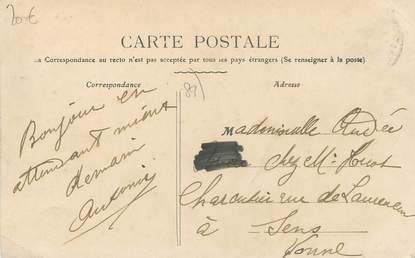 20€
CARTE POSTALE
La Correspondance au recto n'est pas acceptée par tous les pays étrangers (Se renseigner à la poste).
Correspondance
Adresse
Bonjour en
attendant mieux
demain
Mademoiselle Andrée
chez Mr
Charcutier rue de
à Sens
Yonne